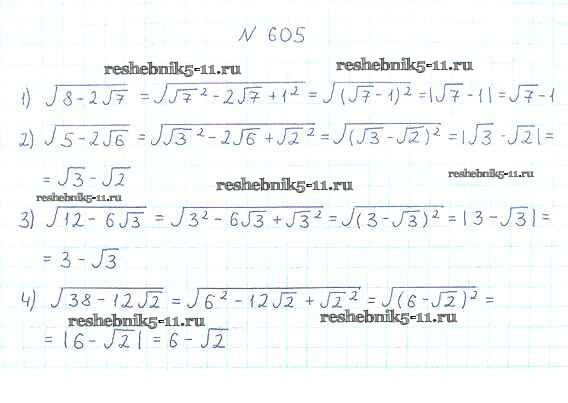 N 605
reshebnik5-11.ru
reshebnik5-11.ru
1) √(8 - 2√7) = √(√7² - 2√7 + 1²) = √((√7 - 1)²) = |√7 - 1| = √7 - 1
2) √(5 - 2√6) = √(√3² - 2√6 + √2²) = √((√3 - √2)²) = |√3 - √2| =
= √3 - √2
reshebnik5-11.ru
reshebnik5-11.ru
reshebnik5-11.ru
3) √(12 - 6√3) = √(3² - 6√3 + √3²) = √((3 - √3)²) = |3 - √3| =
= 3 - √3
4) √(38 - 12√2) = √(6² - 12√2 + √2²) = √((6 - √2)²) =
reshebnik5-11.ru
reshebnik5-11.ru
= |6 - √2| = 6 - √2